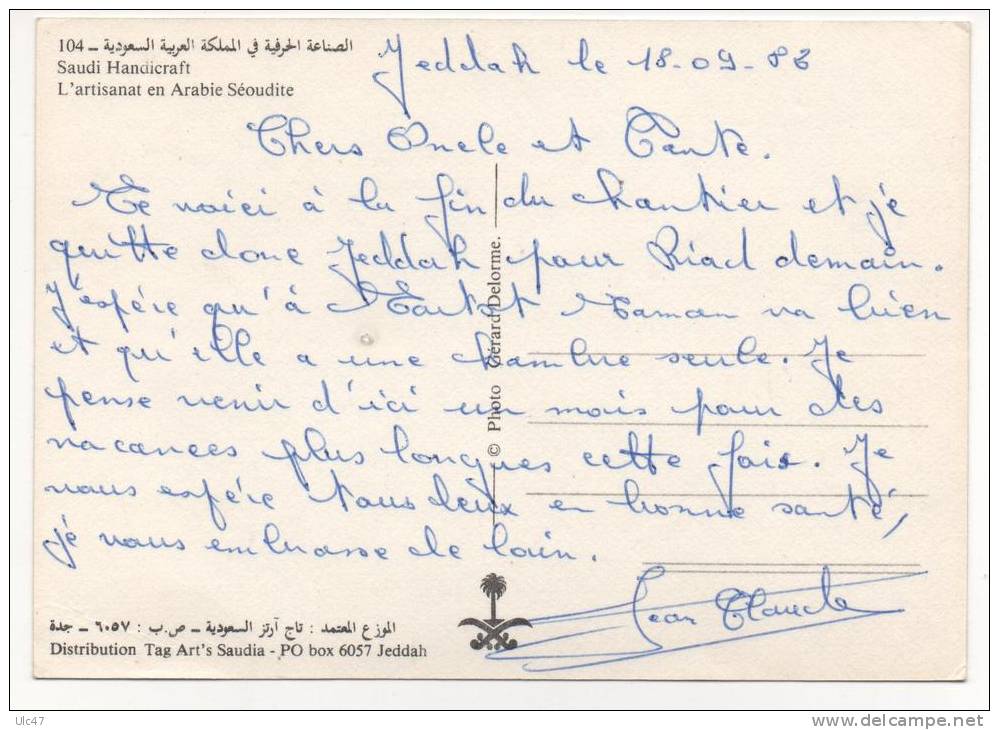 104 – الصناعة الحرفية في المملكة العربية السعودية
Saudi Handicraft
L'artisanat en Arabie Séoudite
Jeddah le 18-09-83
Chers Oncle et Tante.
Me voici à la fin du chantier et je
quitte donc Jeddah pour Riad demain.
J'espère qu'à Maman va bien
et qu'elle a une chambre seule. Je
pense venir d'ici un mois pour des
vacances plus longues cette fois. Je
vous espère tous deux en bonne santé,
je vous embrasse de loin.
Jean Claude
© Photo Gérard Delorme.
الموزع المعتمد : تاج آرتز السعودية – ص.ب : ٦٠٥٧ – جدة
Distribution Tag Art's Saudia - PO box 6057 Jeddah
Ulc47
delcampe.net